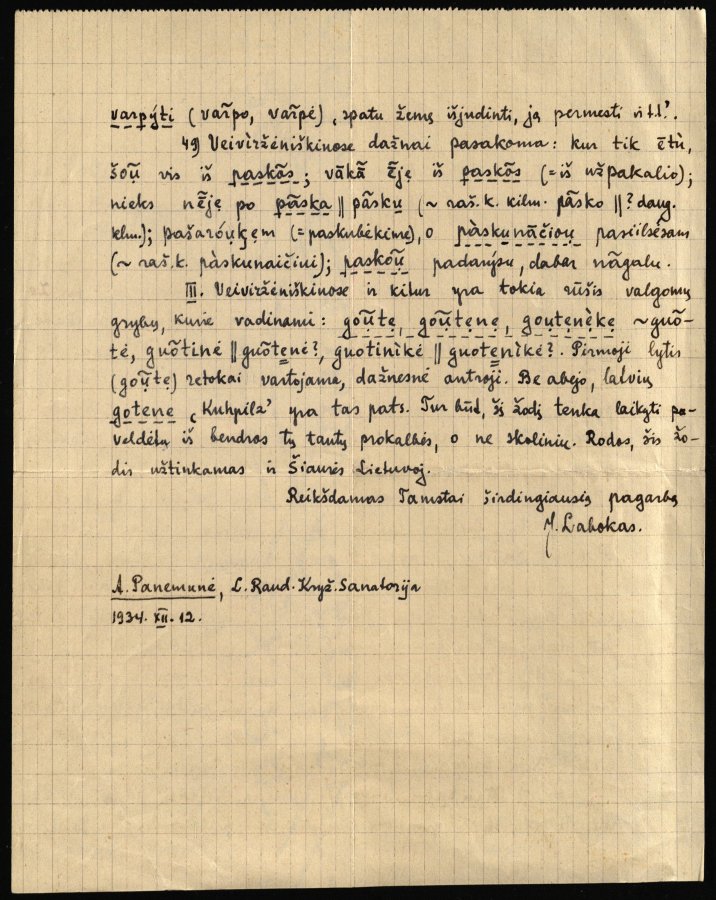 varpýti (var̃po, var̃pė) ‚spatu žemę išjudinti, ją permesti ir t.t.‘.
49) Veiviržėniškinose dažnai pasakoma: kur tik ētù,
šoũ vis iš paskõs; vākā̃ ẽję iš paskõs (= iš užpakalio);
nieks nẽję po pãska || pãsku (~ raš. k. kilm. pãsko || ? daug.
klm.); pašaróukęm (= paskubėkime), o pàskunāčiou pasiilsėsam
(~ raš. k. pàskunaičiui); paskoũ padarysu, dabar nāgalu.
III. Veivirženiškinose ir kitur yra tokia rūšis valgomų
grybų, kurie vadinami: goũtę, goũtenę, goutenìkę ~ guõ-
tė, guõtinė || guõtenė?, guotinìkė || guotenìkė?. Pirmoji lytis
(goũtę) retokai vartojama, dažnesnė antroji. Be abejo, latvių
gotene ‚Kuhpilz‘ yra tas pats. Tur būd, šį žodį tenka laikyti pa-
veldėtų iš bendros tų tautų prokalbės, o ne skolinių. Rodos, šis žo-
dis užtinkamas ir Šiaurės Lietuvoj.
Reikšdamas Tamstai širdingiausią pagarbą
J. Labokas.
A. Panemunė, L. Raud. Kryž. Sanatorija
1934. XII. 12.